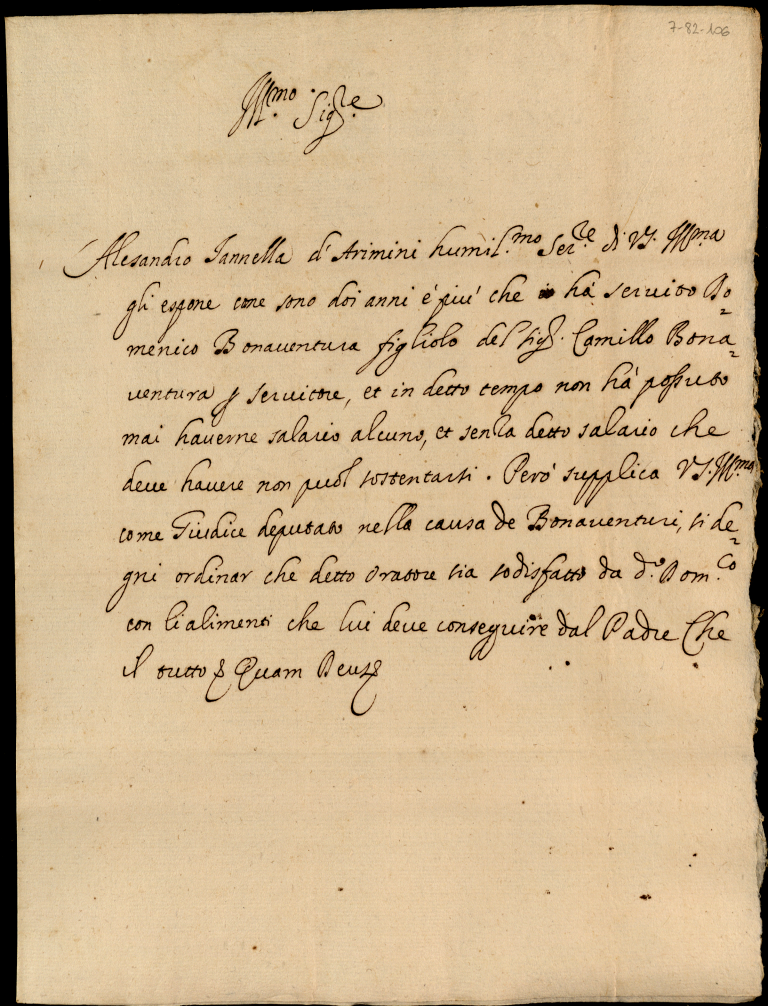 7-82-106
Ill.mo Sig.re
Alesandro Iannella d'Arimini humil.mo Ser.re di V.S. Ill.ma
gli espone come sono doi anni é piu' che há seruito Do=
menico Bonauentura figliolo del Sig.r Camillo Bona=
uentura p seruitore, et in detto tempo non há possuto
mai hauerne salario alcuno, et senza detto salario che
deue hauere non puol sostentarsi. Peró supplica V.S. Ill.ma
come Giudice deputato nella causa de Bonauenturi, si de=
gni ordinar che detto Oratore sia sodisfatto da d.o Dom.co
con li alimenti che lui deue conseguire dal Padre Che
il tutto & Quam Deus &